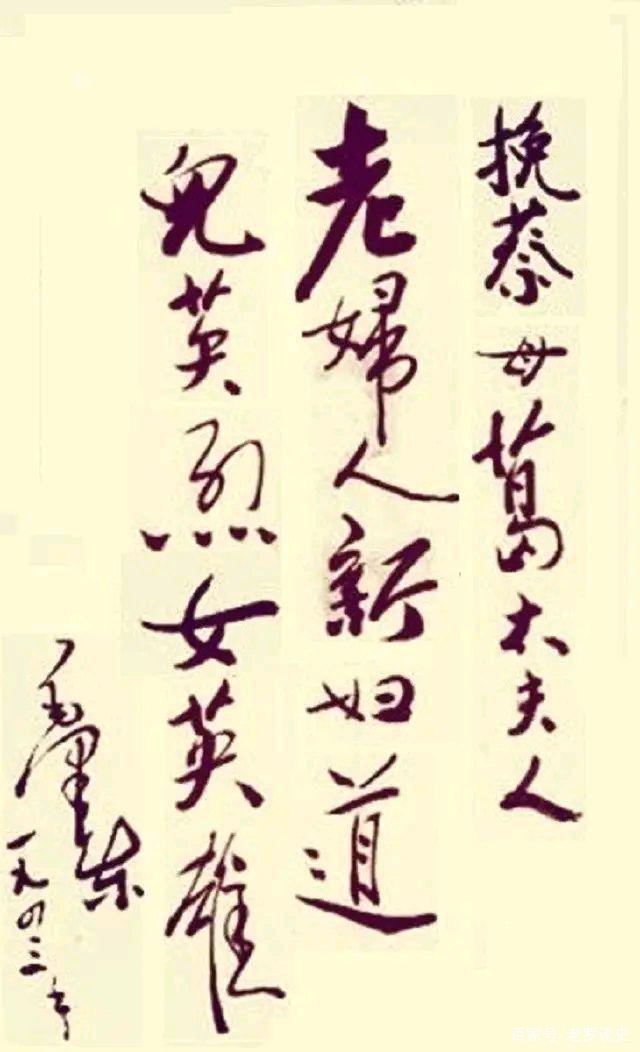 挽蔡母葛太夫人
老婦人新妇道
兒英烈女英雄
毛澤东
一九四三年
百家号/老罗谈史